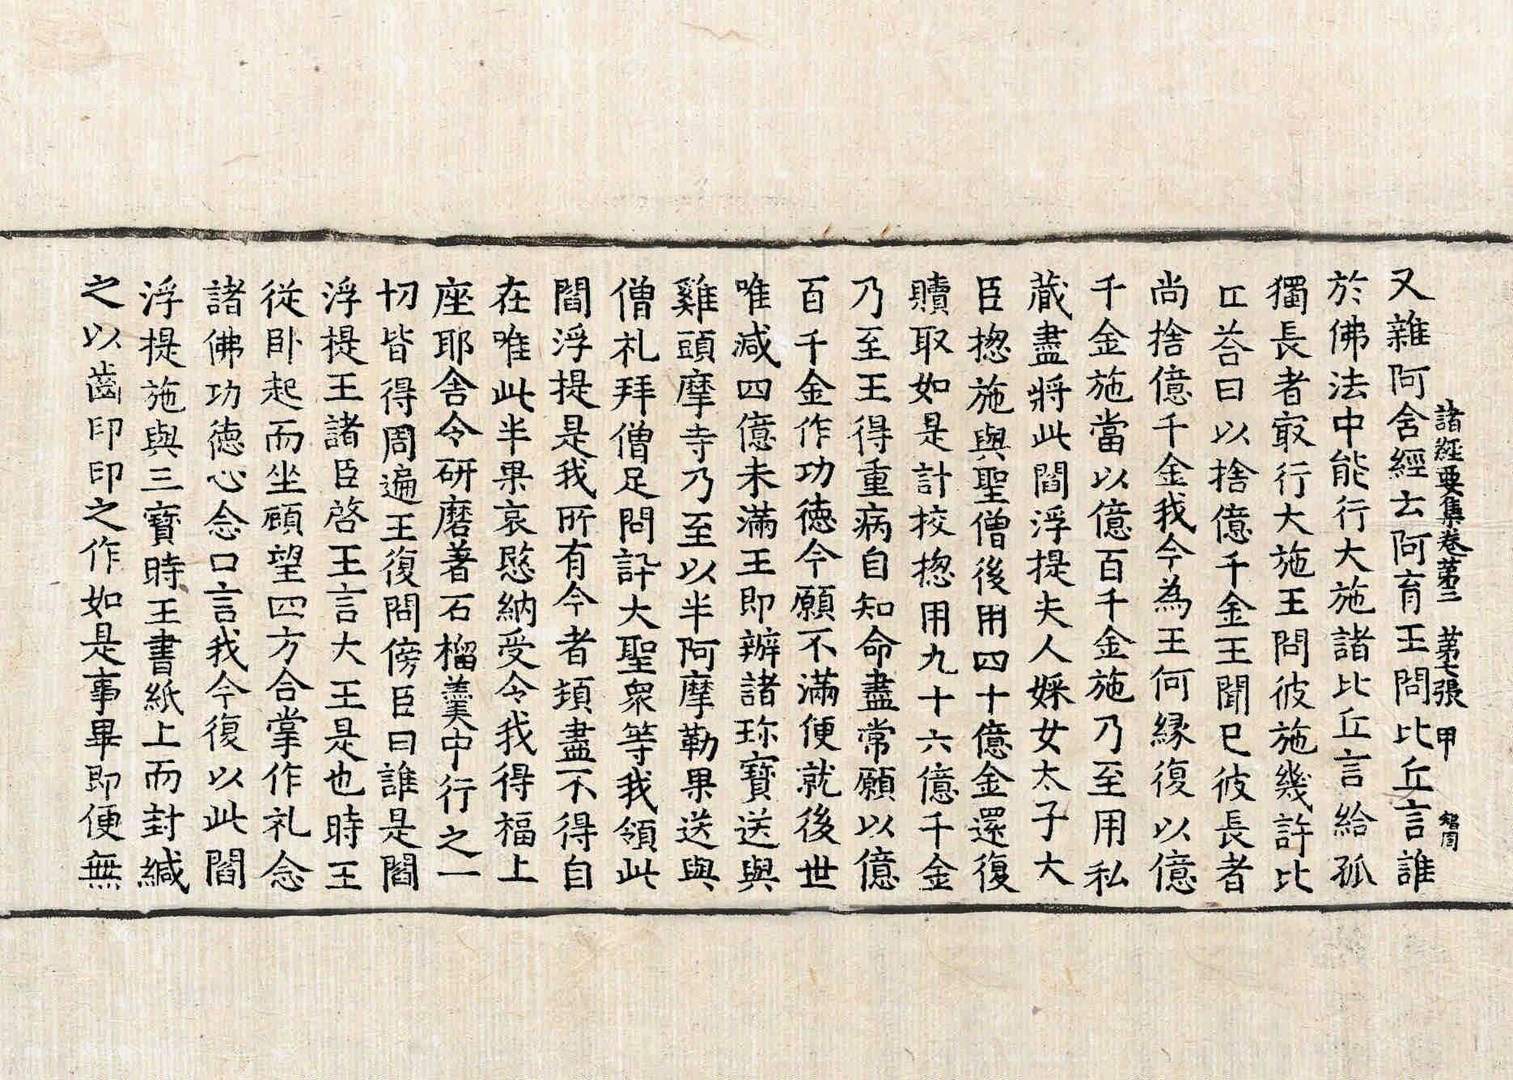 諸經要集卷第三　第七張　甲
又雜阿含經云阿育王問比丘言誰
於佛法中能行大施諸比丘言給孤
獨長者㝡行大施王問彼施幾許比
丘荅曰以捨億千金王聞已彼長者
尚捨億千金我今為王何緣復以億
千金施當以億百千金施乃至用私
藏盡將此閻浮提夫人婇女太子大
臣揔施與聖僧後用四十億金還復
贖取如是計挍揔用九十六億千金
乃至王得重病自知命盡常願以億
百千金作功德今願不滿便就後世
唯減四億未滿王即辦諸珎寶送與
雞頭摩寺乃至以半阿摩勒果送與
僧礼拜僧足問訊大聖衆等我領此
閻浮提是我所有今者頓盡不得自
在唯此半果哀愍納受令我得福上
座耶舍令研磨著石榴羹中行之一
切皆得周遍王復問傍臣曰誰是閻
浮提王諸臣啓王言大王是也時王
從卧起而坐顧望四方合掌作礼念
諸佛功德心念口言我今復以此閻
浮提施與三寶時王書紙上而封緘
之以齒印印之作如是事畢即便無